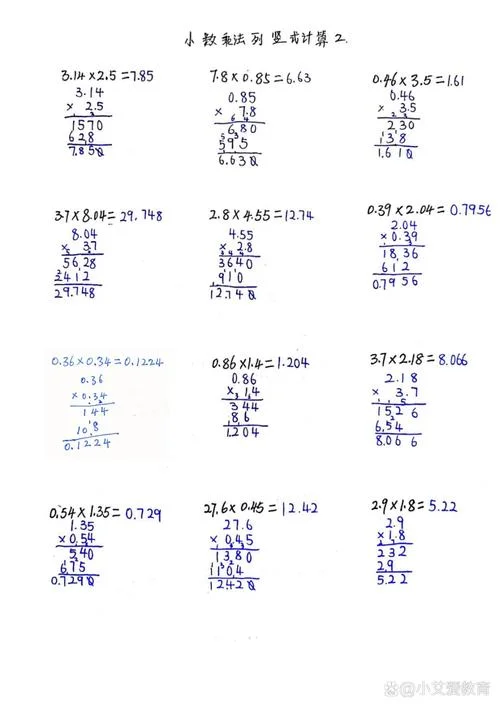 小数乘法列竖式计算2.
3.14×2.5=7.85
3.14
× 2.5
1570
628
7.850
7.8×0.85=6.63
0.85
× 7.8
680
595
6.630
0.46×3.5=1.61
0.46
× 3.5
230
138
1.610
3.7×8.04=29.748
8.04
× 3.7
5628
2412
29.748
2.8×4.55=12.74
4.55
× 2.8
3640
910
12.740
0.39×2.04=0.7956
2.04
×0.39
1836
612
0.7956
0.36×0.34=0.1224
0.36
×0.34
144
108
0.1224
0.86×1.4=1.204
0.86
× 1.4
344
86
1.204
3.7×2.18=8.066
2.18
× 3.7
1526
654
8.066
0.54×1.35=0.729
1.35
×0.54
540
675
0.7290
27.6×0.45=12.42
27.6
×0.45
1380
1104
12.420
2.9×1.8=5.22
2.9
×1.8
232
29
5.22
小艾爱教育